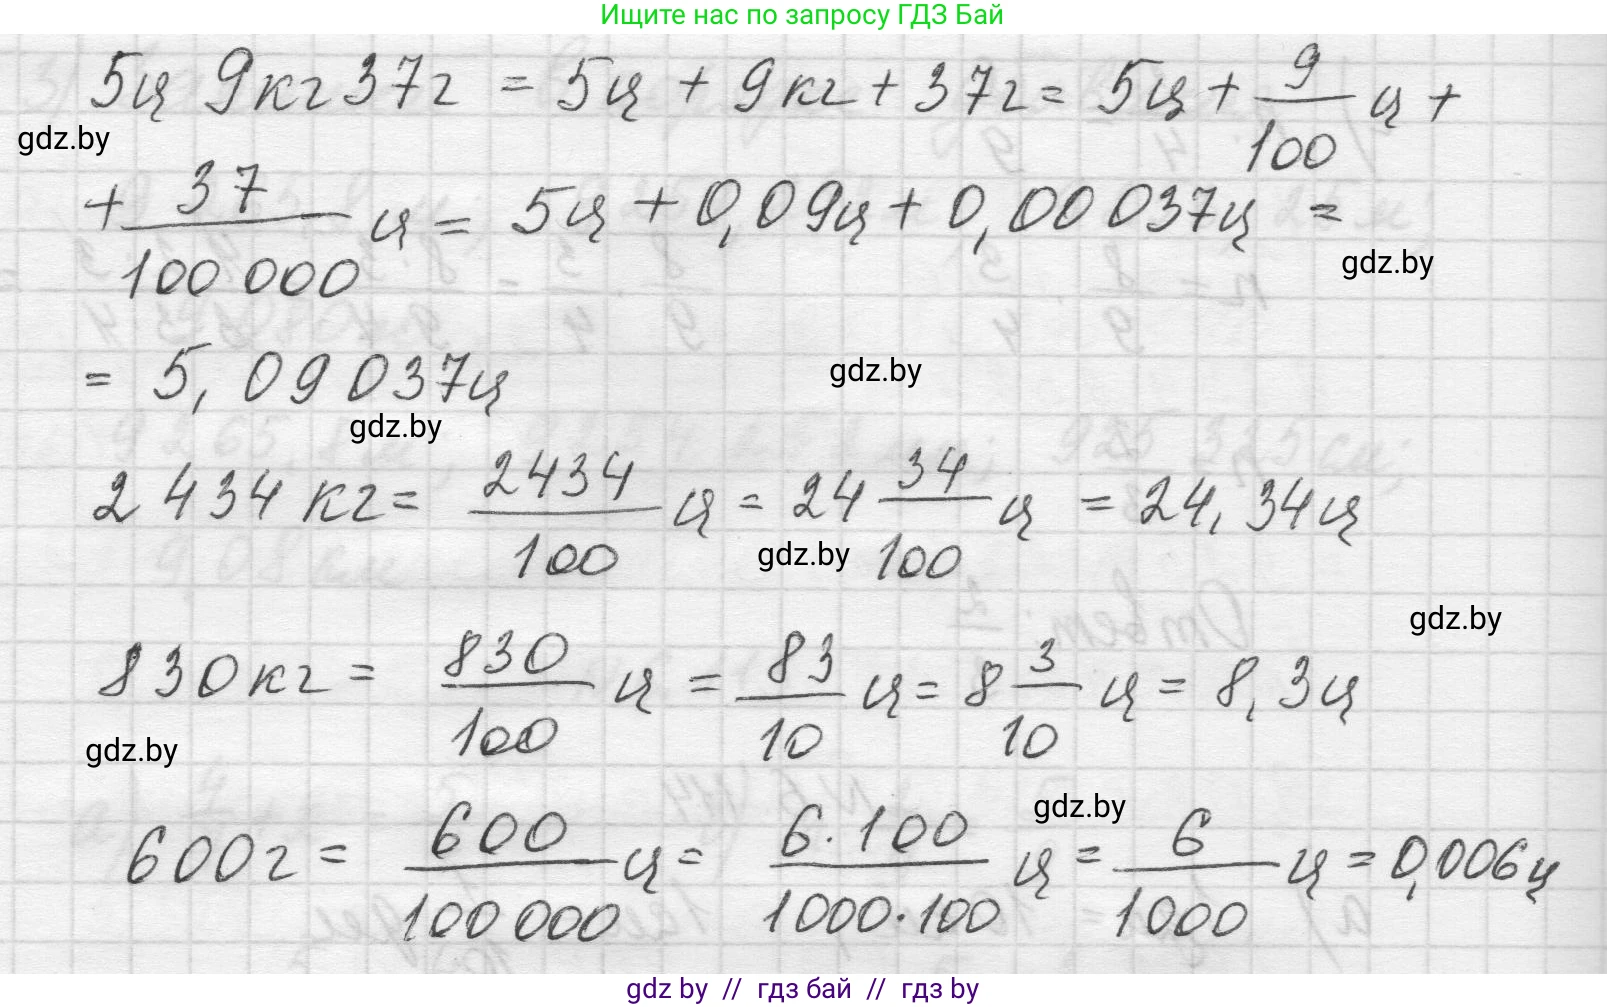 Ищите нас по запросу ГДЗ Бай
5ц 9кг 37г = 5ц + 9кг + 37г = 5ц + 9/100 ц +
gdz.by
+ 37/100 000 ц = 5ц + 0,09ц + 0,00 037ц =
gdz.by
= 5,09 037ц
gdz.by
gdz.by
2 434 кг = 2434/100 ц = 24 34/100 ц = 24,34ц
gdz.by
gdz.by
830кг = 830/100 ц = 83/10 ц = 8 3/10 ц = 8,3ц
gdz.by
gdz.by
600г = 600/100 000 ц = 6·100/1000·100 ц = 6/1000 ц = 0,006ц
gdz by // гдз бай // гдз by